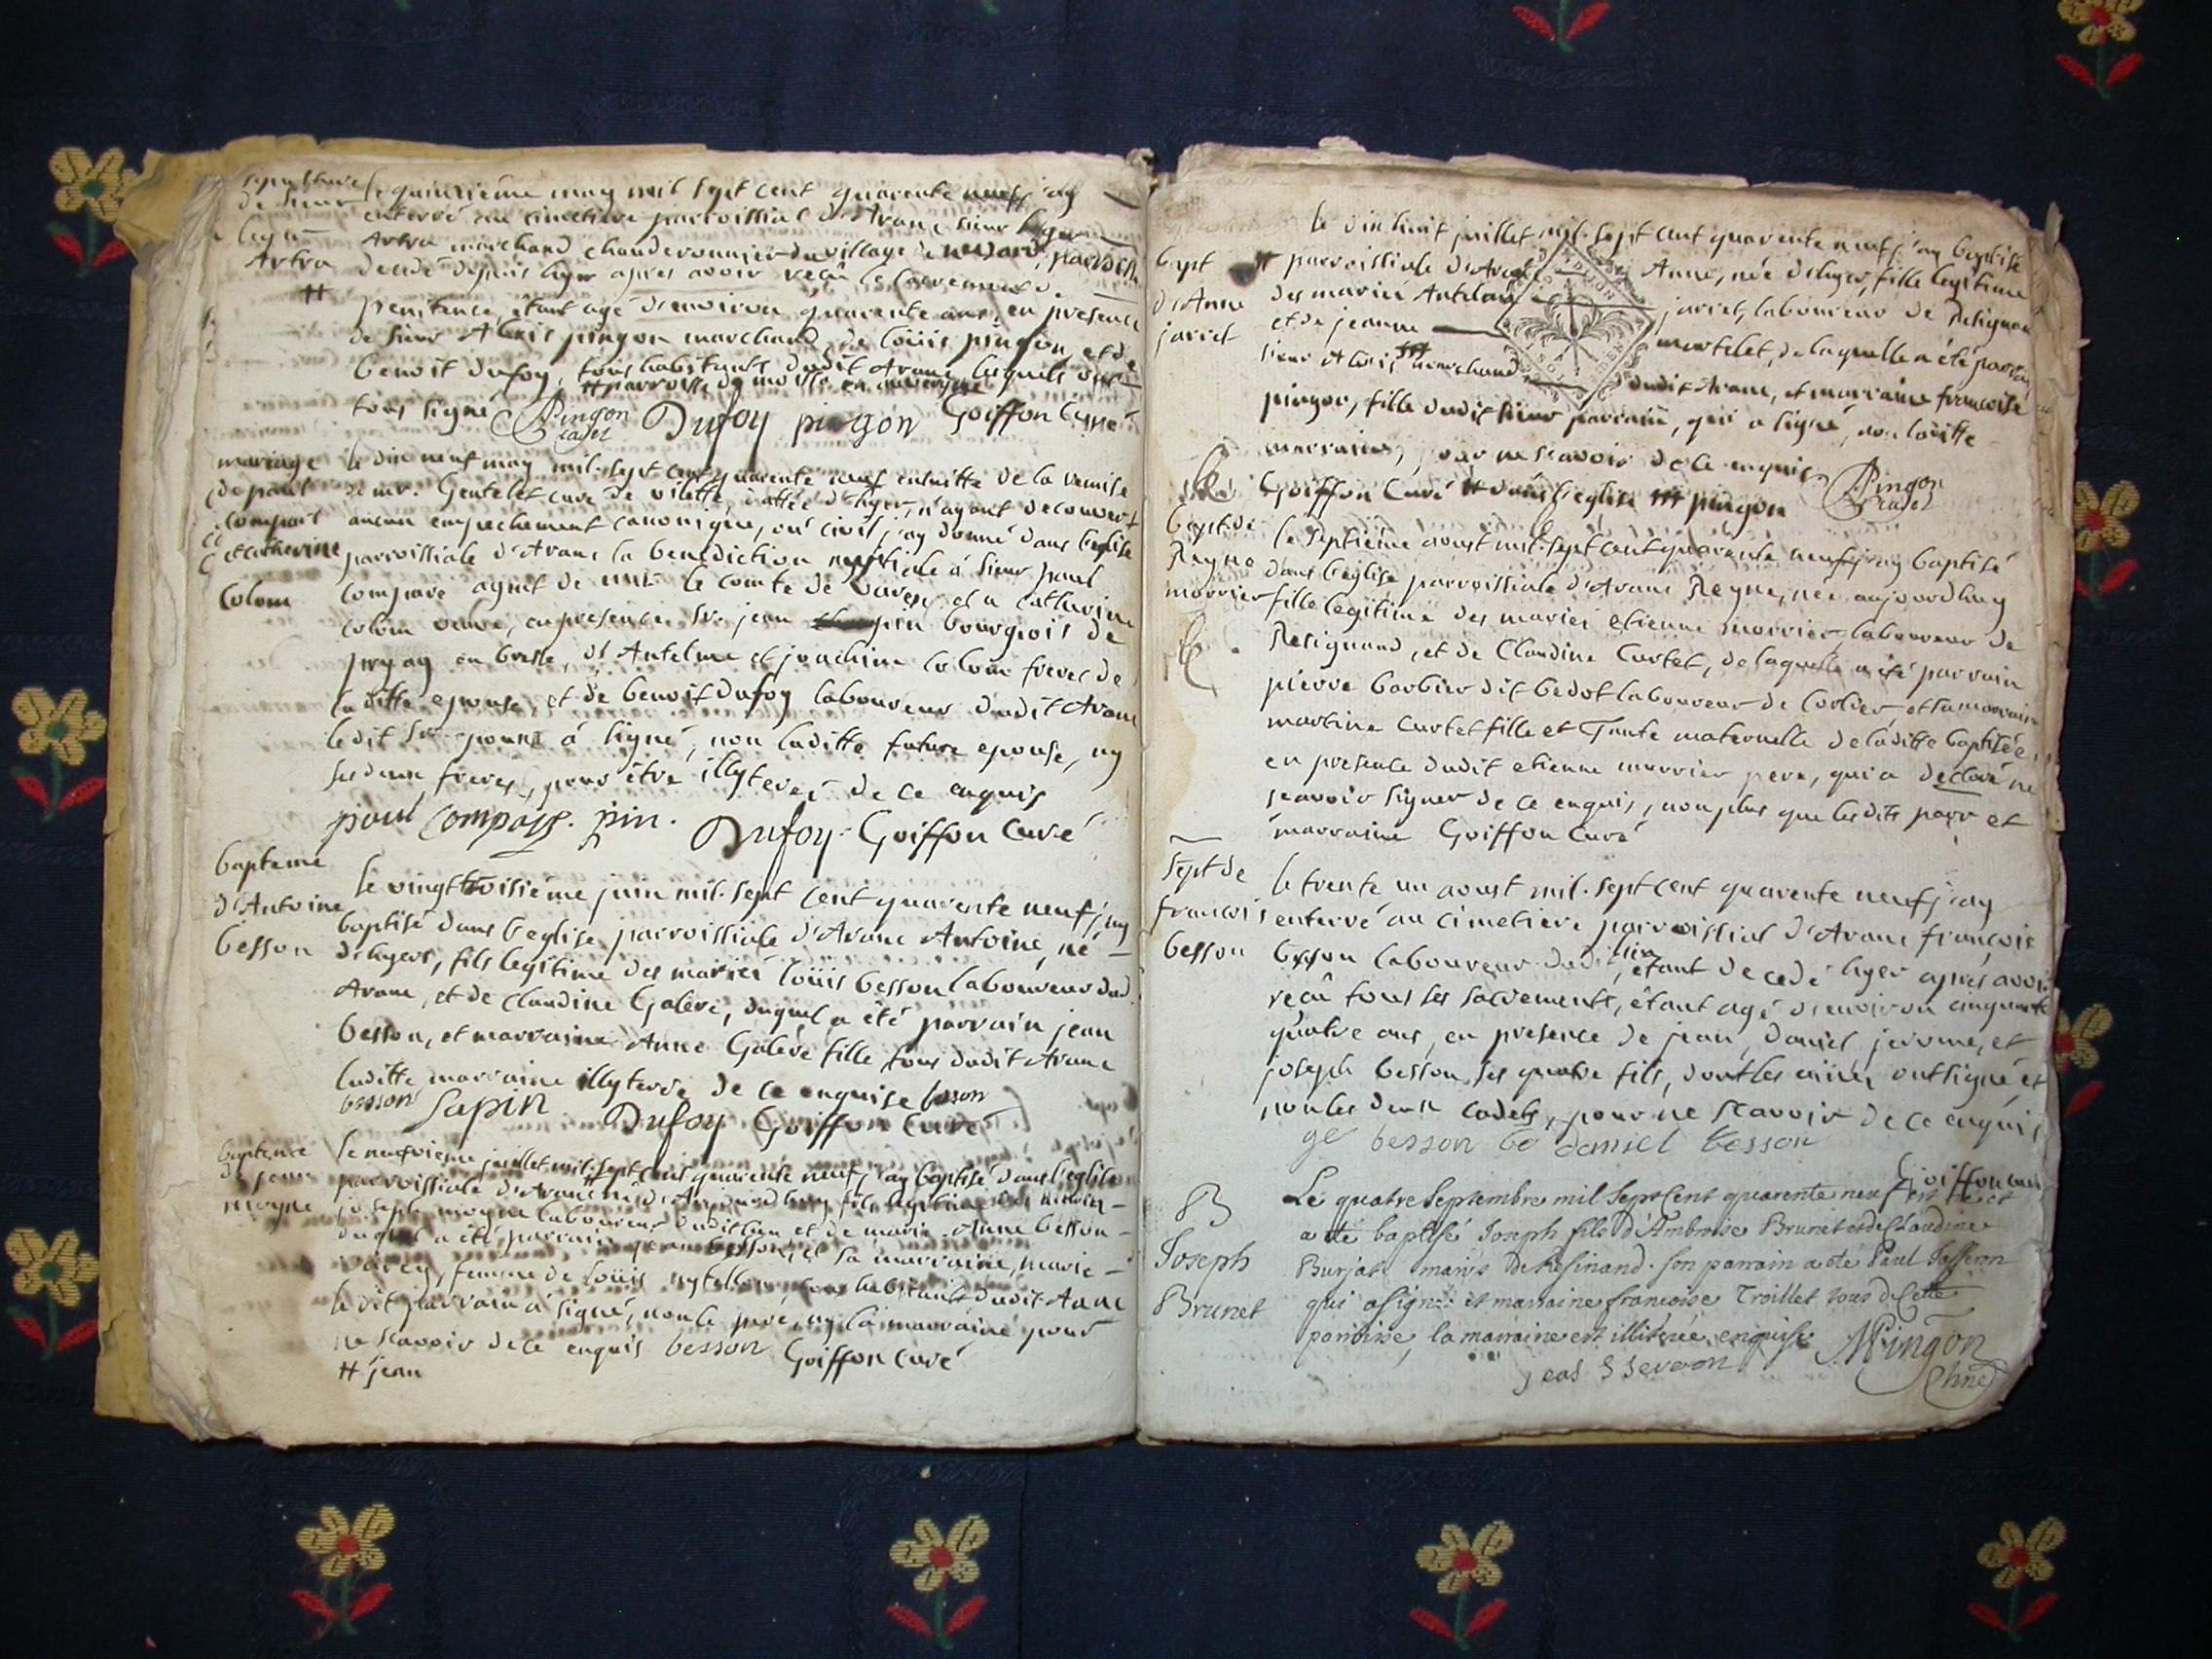 sepulture
de sieur
leger
Artra
le quinzième may mil sept cent quarente neuf j'ay
enterré au cimetiere parroissial d'Aranc sieur leger
Artra marchand chauderonnier du village de parroisse
decedé depuis hyer apres avoir reçû le sacrement de
penitence, étant agé d'environ quarente ans, en presence
de sieur Aloïs pingon marchand, de loüis pingon, et de
benoit Dufoy, tous habitants dudit Aranc lesquels ont
# parroisse de en auvergne
tous signé Pingon Dufoy pingon Goiffon Curé
cadet
mariage
de paul
compare
et catherine
Colom
le dix neuf may mil sept cent quarente neuf ensuitte de la remise
de mr. Gentelet curé de vilette, dattée d'hyer, n'ayant decouvert
aucun empechement canonique, ou civil j'ay donné dans l'eglise
parroissiale d'Aranc la benediction nuptiale à sieur paul
compare agent de le comte de et a catherine
colom veuve, en presence, sr. jean pin bourgeois de
en bresse, d'Antelme et joachim colom freres de
laditte epouse, et de benoit Dufoy laboureur dudit Aranc
ledit sr. epoux à signé, non laditte future epouse, ny
ses deux freres, pour être illyterés de ce enquis
paul compare. pin. Dufoy. Goiffon Curé
bapteme
d'Antoine
besson
le vingt troisième juin mil sept cent quarente neuf j'ay
baptisé dans l'eglise parroissiale d'Aranc Antoine, né
d'hyers, fils legitime des mariés loüis besson laboureur dud.
Aranc, et de claudine Galere, duquel a été parrain jean
besson, et marraine Anne Galere fille tous dudit Aranc
laditte marraine illyterée de ce enquise besson
besson sapin Dufoy Goiffon Curé
bapteme
de jean
moyne
le neufvieme juillet mil sept cent quarente neuf j'ay baptisé dans l'eglise
parroissiale d'Aranc # né d'Aujourd'huy fils legitime des mariés
joseph moyne laboureur dudit lieu et de marie Anne besson
duquel a été parrain jean besson, et sa marraine, marie
femme de loüis tous habitants dudit Aranc
le dit parrain à signé, non le pere, ny la marraine pour
ne scavoir de ce enquis besson Goiffon curé
# jean
bapt
d'Anne
jarict
le dix huit juillet mil sept cent quarente neuf j'ay baptisé
# parroissiale d'Aranc Anne, née d'hyer, fille legitime
des mariés Antelme jarict, laboureur de Resignan
et de jeanne martelet, de laquelle a été parrain
sieur Aloïs ### marchand dudit Aranc, et marraine francoise
pingon, fille dudit sieur parrain, qui a signé, non laditte
marraine, pour ne scavoir de ce enquis Pingon
cadet
Goiffon Curé # dans l'eglise ### pingon
bapt. de
Reyne
morrier
le septieme aoust mil sept cent quarente neuf j'ay baptisé
dans l'eglise parroissiale d'Aranc Reyne, née aujourdhuy
fille legitime des mariés etienne morrier laboureur de
Resignand, et de Claudine Curtet, de laquelle a été parrain
pierre barbier dit bedot laboureur de Corlier, et sa marraine
martine Curtet fille et Tante maternelle de laditte baptisée,
en presence dudit etienne morrier pere, qui a declaré ne
scavoir signer de ce enquis, non plus que lesdits parr et
marraine Goiffon Curé
sept de
francois
besson
le trente un aoust mil sept cent quarente neuf j'ay
enterré au cimetiere parroissial d'Aranc françois
besson laboureur dudit lieu, étant decedé hyer aprés avoir
reçû tous les sacrements, étant agé d'environ cinquante
quatre ans, en presence de jean, daniel, jerome, et
joseph besson, ses quatre fils, dont les ainés ont signé et
non les deux cadets, pour ne scavoir de ce enquis
ge besson be daniel besson
Goiffon curé
B
Joseph
Brunet
Le quatre Septembre mil Sept Cent quarente neuf est né et
a été baptisé Joseph fils d'Ambroise Brunet et de Claudine
Burjat mariés de Resinand. Son parrain a été Paul
qui a signé et marraine francoise Troillet tous de Cette
paroisse, la marraine est illiterée, enquise Pingon